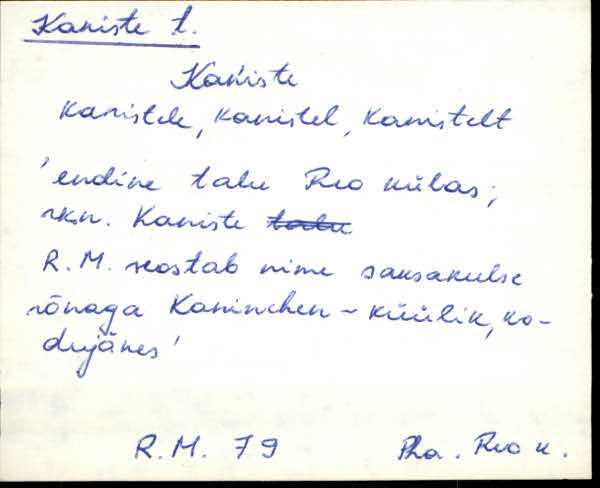 Kaniste t.
Kańiste
kanistele, kanistel, kanistelt
'endine talu Reo külas;
rk.n. Kaniste talu
R.M. seostab nime saksakeelse
sõnaga Kaninchen - küülik, ko-
dujänes'
R.M. 79 Pha. Reo k.